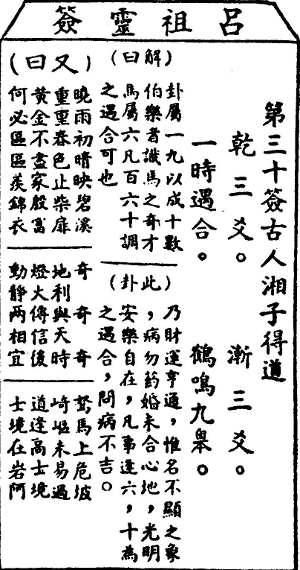 呂祖靈簽
第三十簽古人湘子得道
乾三爻。漸三爻。
一時遇合。鶴鳴九臯。
(解曰)
卦屬一九以成十數
伯樂者識馬之奇才
馬屬六凡百六十調
之遇合可也
(此卦)
乃財運亨通,惟名不顯之象
,病勿葯婚未合心地,光明
安樂自在,凡事逢六,十為
之遇合,問病不吉。
(又曰)
曉雨初晴映碧溪
重重春色止柴扉
黃金不盡家殷富
何必區區羨錦衣
奇奇奇
地利與天時
燈火傳信後
動靜兩相宜
駑馬上危坡
崎嶇未易過
逍遙高士境
士境在岩阿